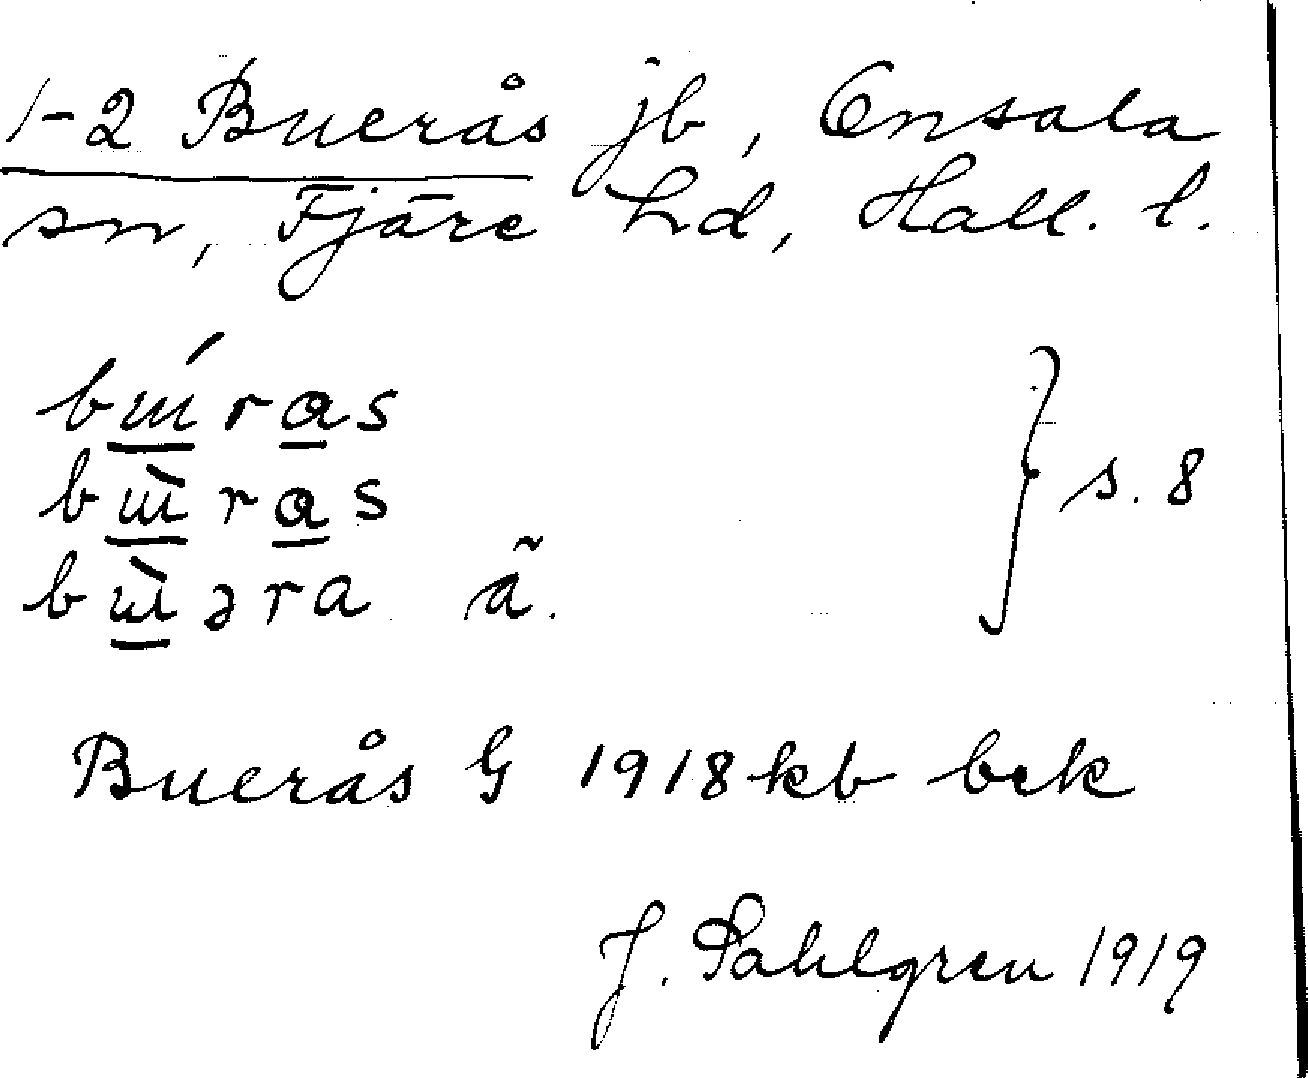 1-2 Buerås jb, Onsala
sn, Fjäre hd, Hall. l.
bɯ́ras
bɯ̀ras
bɯ̀əra ã.
} s. 8
Buerås G 1918 kb bek
J. Sahlgren 1919